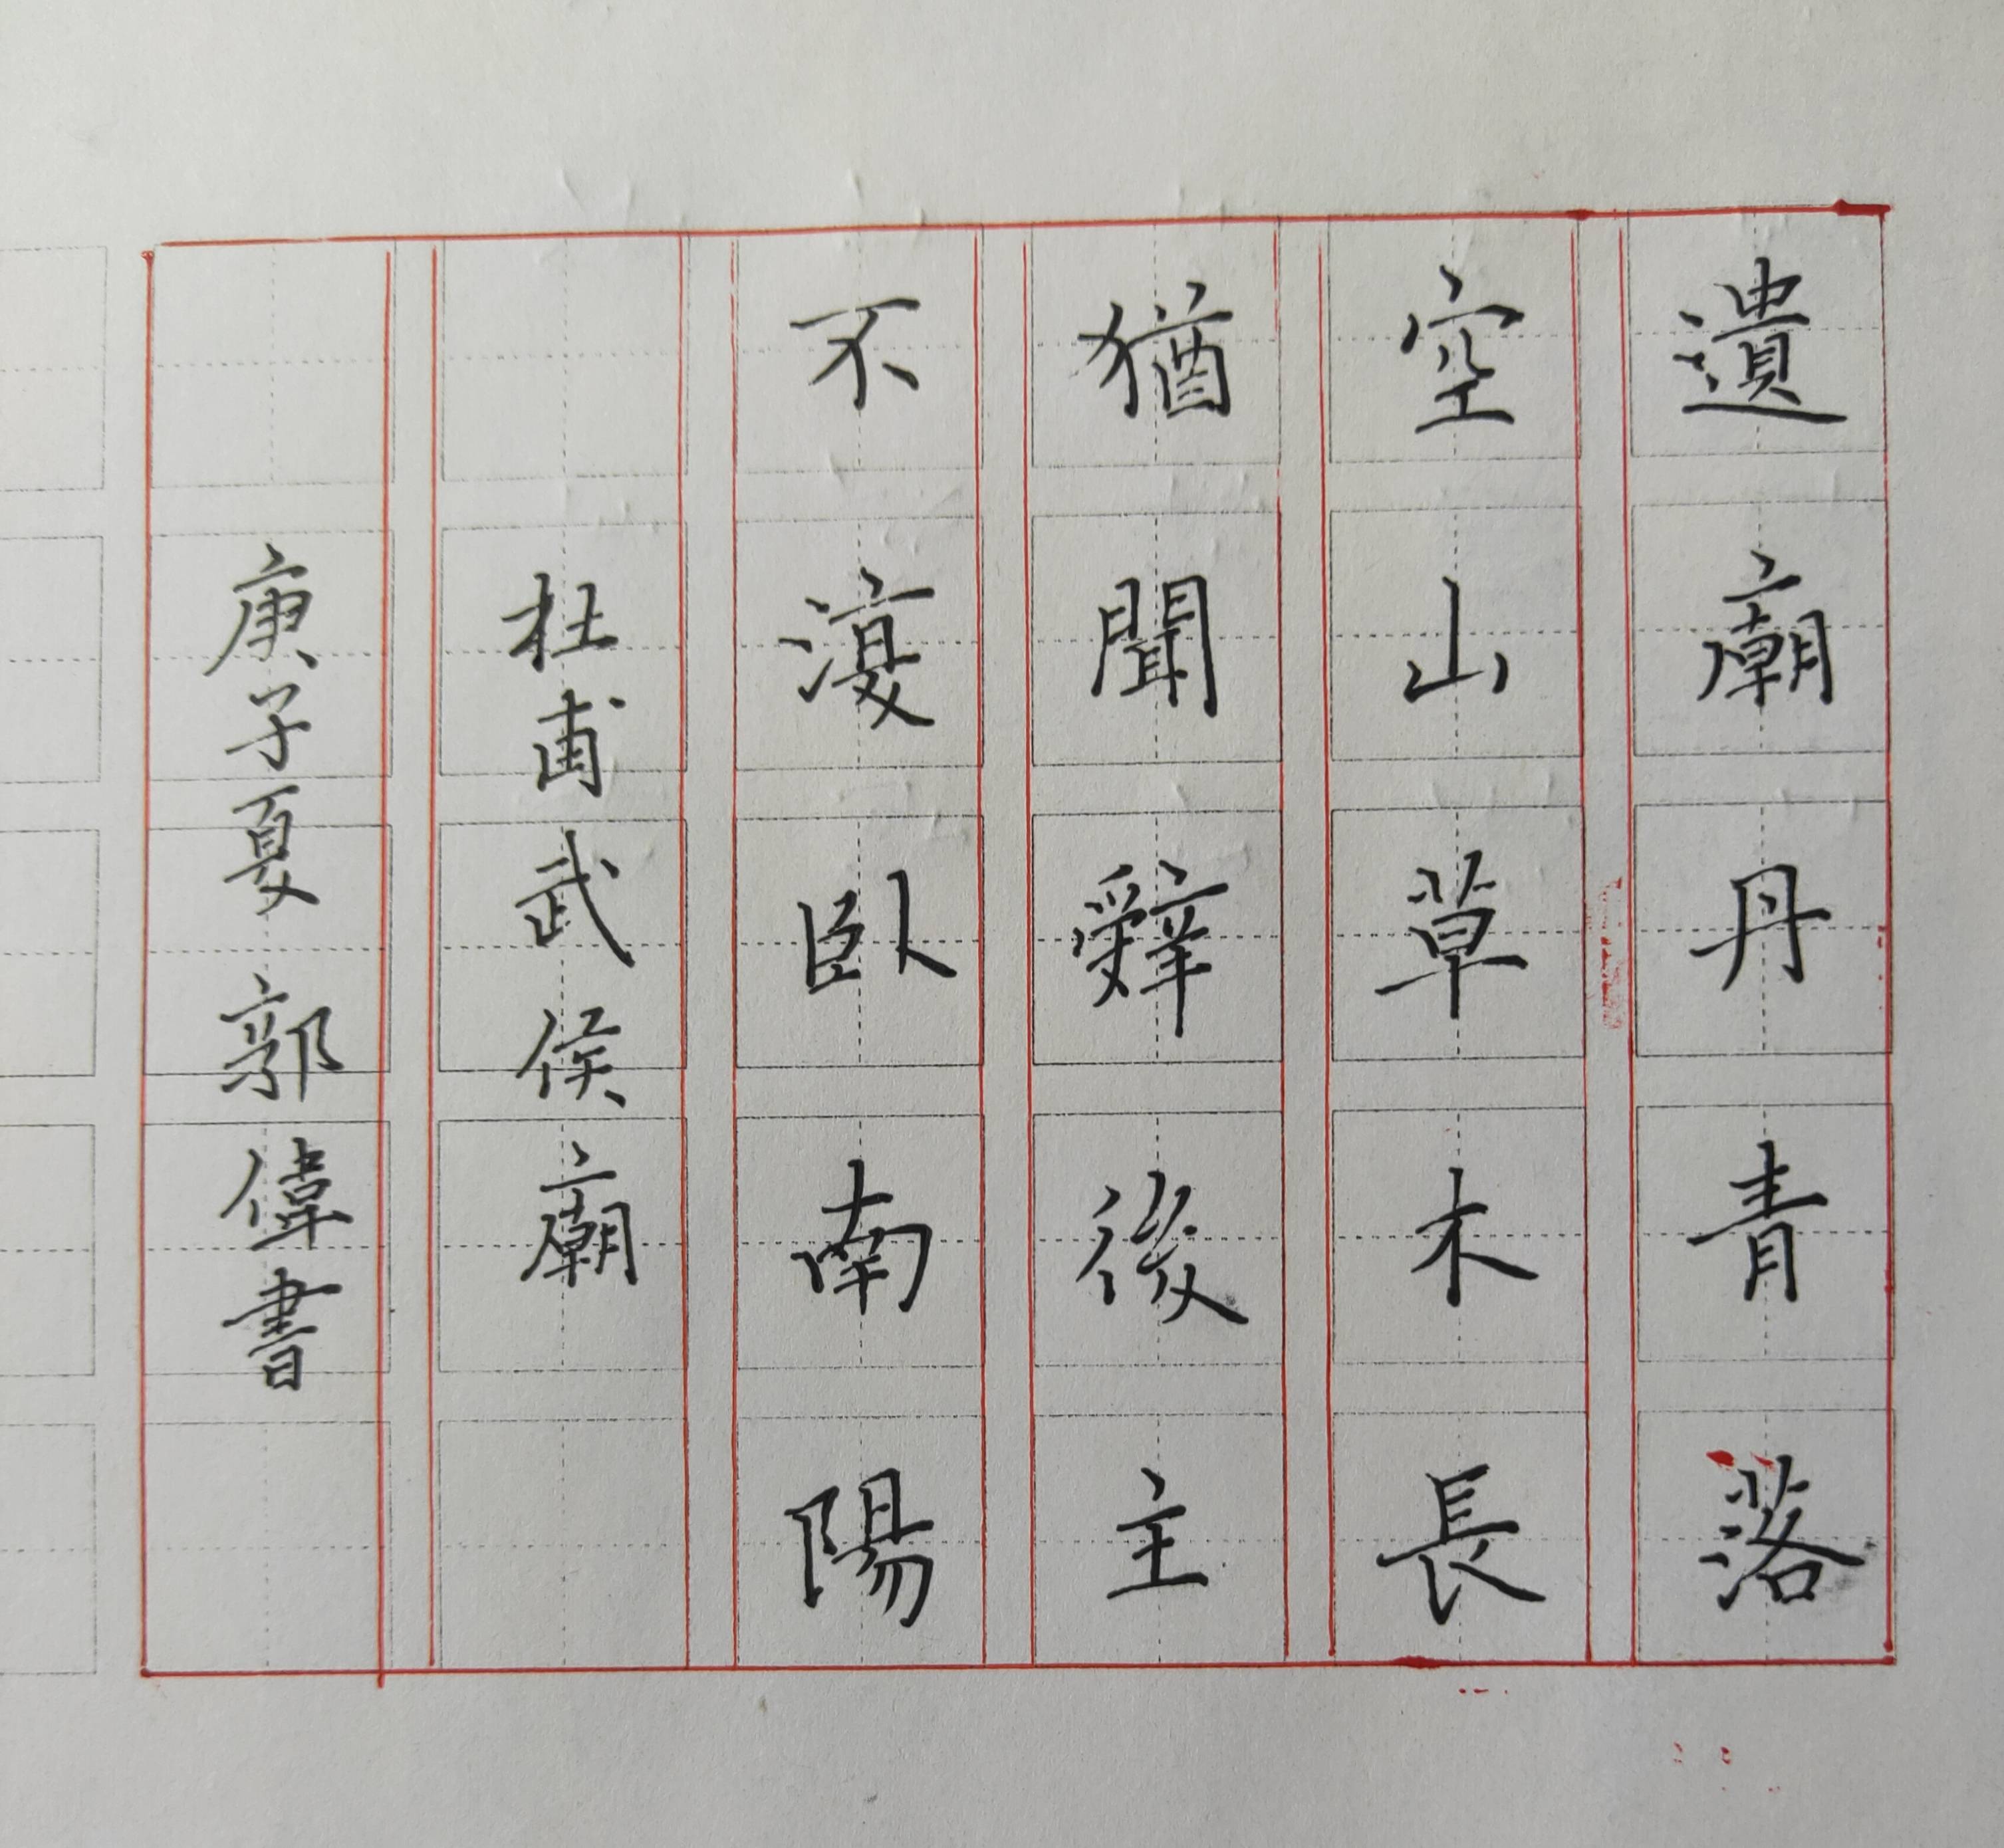 遺廟丹青落
空山草木長
猶聞辭後主
不復臥南陽
杜甫武侯廟
庚子夏 郭偉書